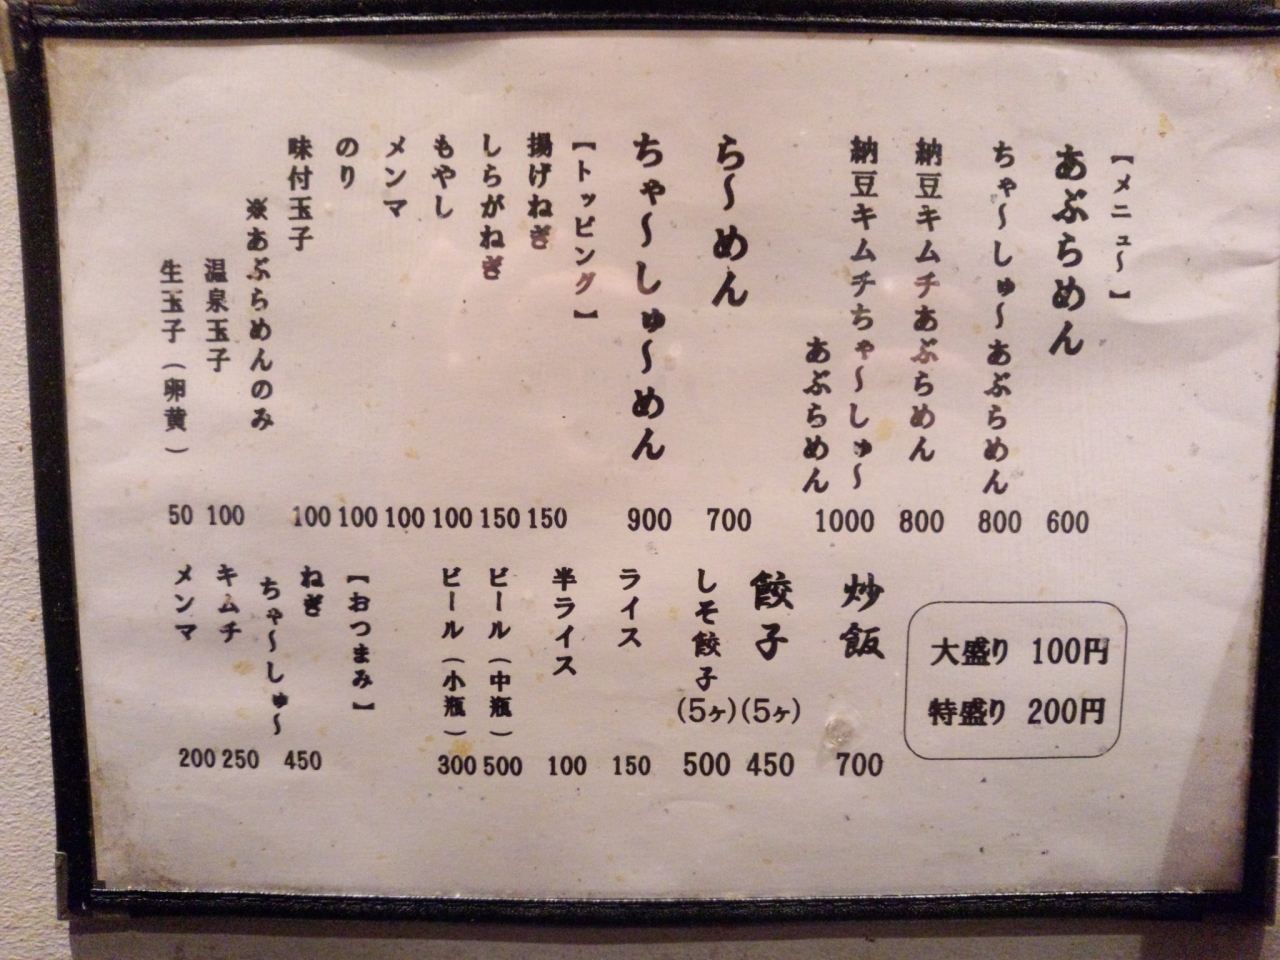 【メニュ〜】
あぶらめん 600
ちゃ〜しゅ〜あぶらめん 800
納豆キムチあぶらめん 800
納豆キムチちゃ〜しゅ〜
あぶらめん 1000
ら〜めん 700
ちゃ〜しゅ〜めん 900
【トッピング】
揚げねぎ 150
しらがねぎ 150
もやし 100
メンマ 100
のり 100
味付玉子 100
※あぶらめんのみ
温泉玉子 100
生玉子(卵黄) 50
大盛り 100円
特盛り 200円
炒飯 700
餃子(5ヶ) 450
しそ餃子(5ヶ) 500
ライス 150
半ライス 100
ビール(中瓶) 500
ビール(小瓶) 300
【おつまみ】
ねぎ
ちゃ〜しゅ〜 450
キムチ 250
メンマ 200